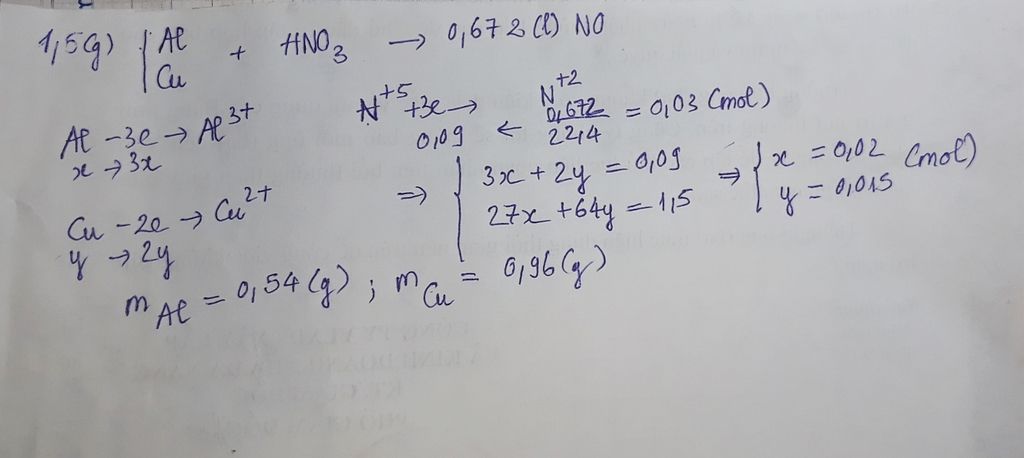 1,5(g) { Al + HNO₃ → 0,672(l) NO
Cu
Al - 3e → Al³⁺
x → 3x
N⁺⁵ + 3e → N⁺²
0,09 ← 0,672/22,4 = 0,03 (mol)
Cu - 2e → Cu²⁺
y → 2y
⇒ { 3x + 2y = 0,09
27x + 64y = 1,5
⇒ { x = 0,02 (mol)
y = 0,015
m Al = 0,54(g) ; m Cu = 0,96(g)